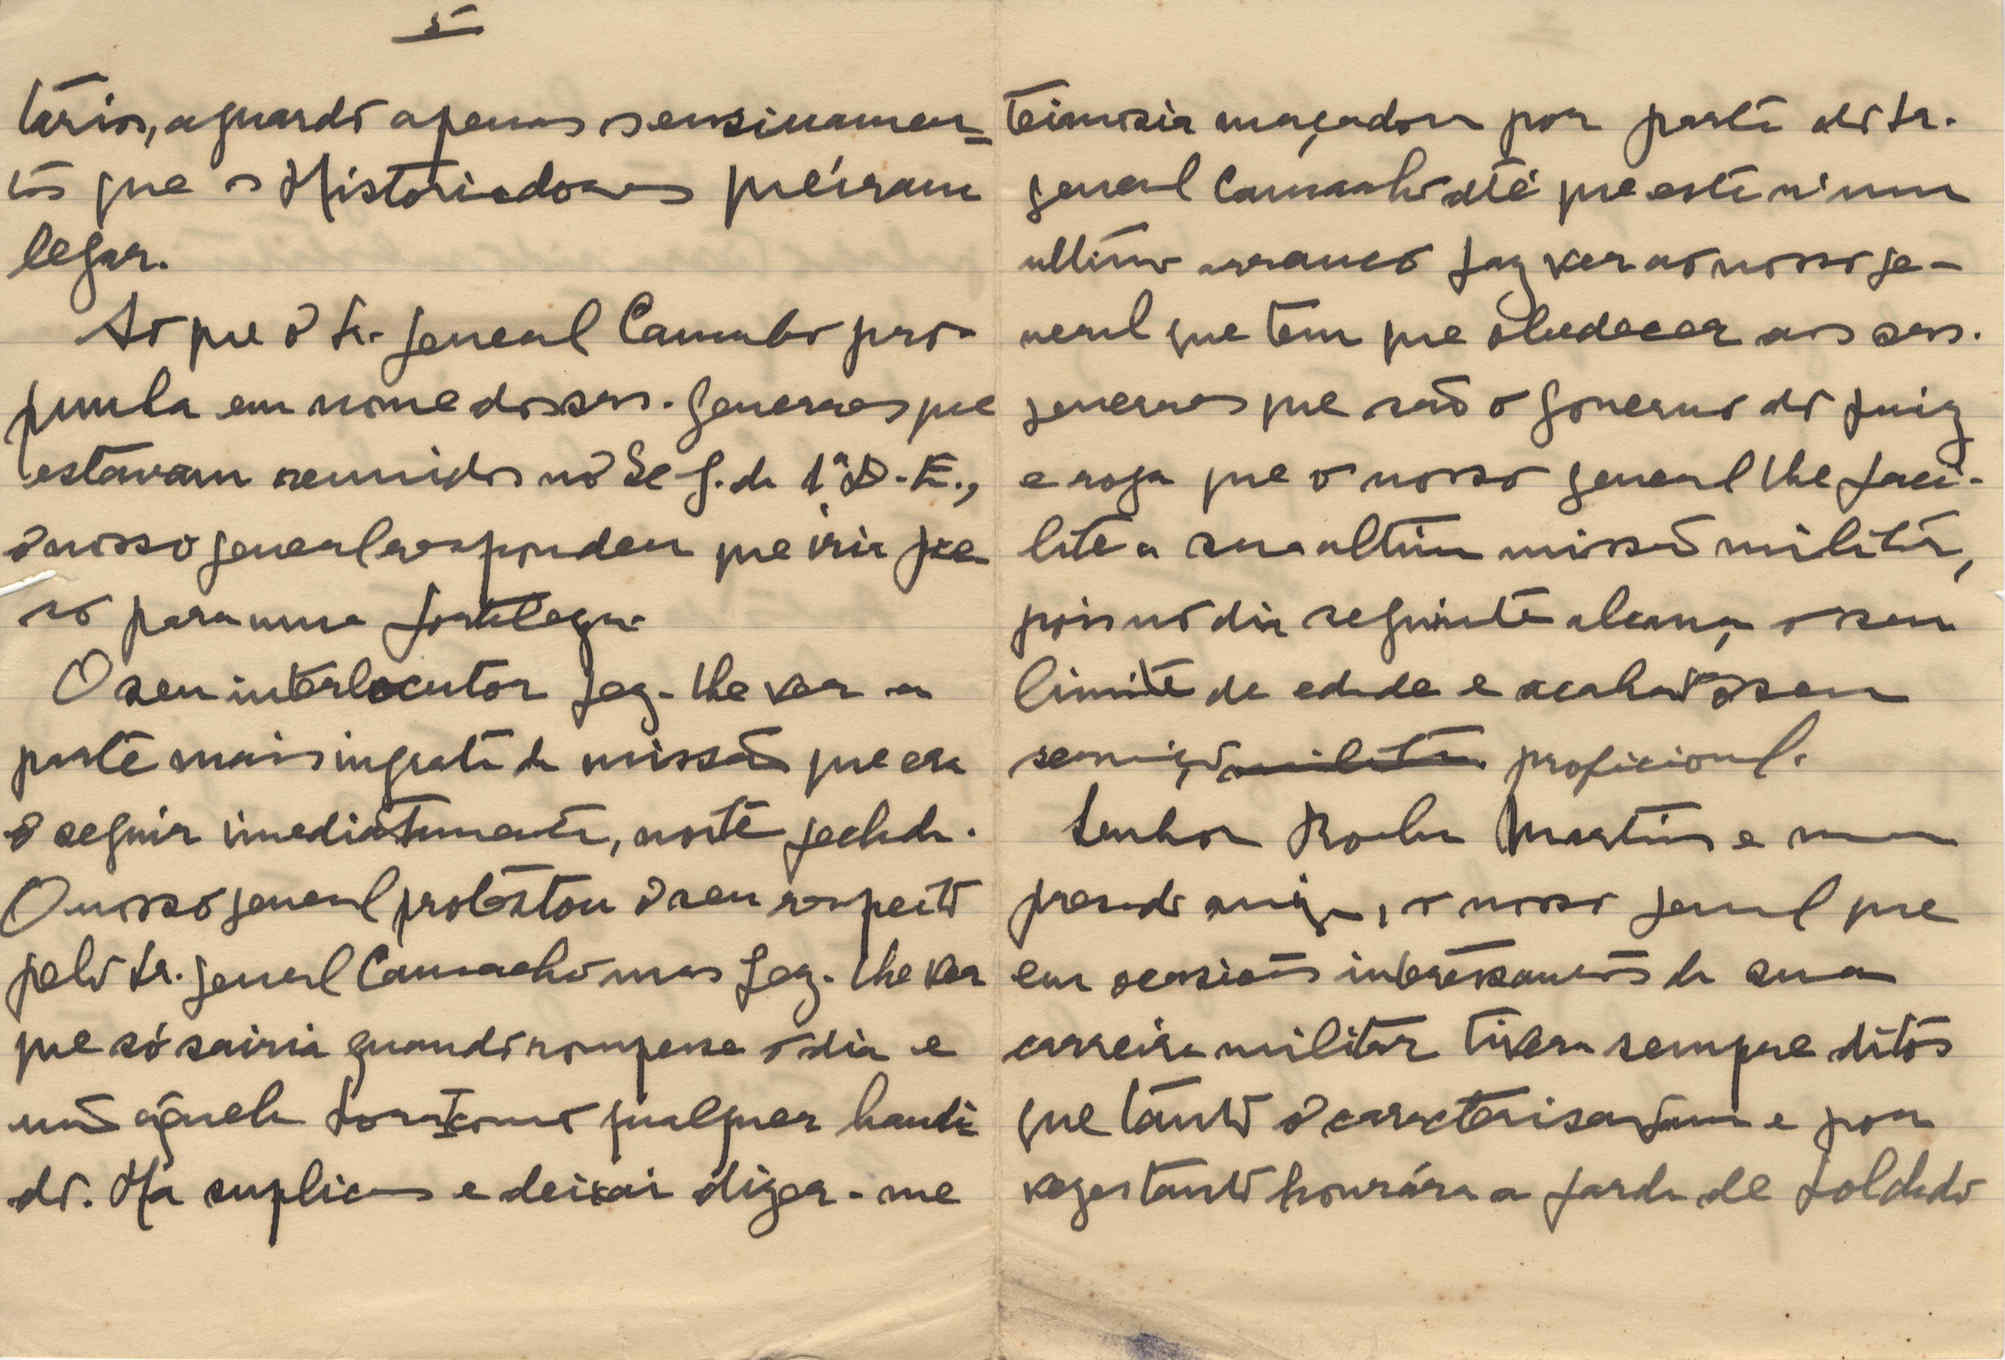 5
tarios, aguardo apenas os ensinamen=
tos que os Historiadores queiram
legar.
Ao que o Sr. general Camacho pro-
punha em nome dos srs. generaes que
estavam reunidos no Q. G. da 1ª D. E.,
o nosso general respondeu que iria pre
so para uma fortaleza.
O seu interlocutor fez-lhe ver a
parte mais ingrata da missão que era
o seguir imediatamente, noite fechada.
O nosso general protestou o seu respeito
pelo Sr. general Camacho mas fez-lhe ver
que só sairia quando rompesse o dia e
não áquela hora como qualquer bandi
do. Ha suplicas e deixai dizer-me
teimosia maçadora por parte do Sr.
general Camacho até que este n'um
ultimo arranco faz ver ao nosso ge-
neral que tem que obedecer aos srs.
generaes que são o governo do paiz
e roga que o nosso general lhe faci-
lite a sua ultima missão militar,
pois no dia seguinte alcança o seu
limite de edade e acabado o seu
serviço militar proficional.
Senhor Rocha Martins e meu
presado amigo, o nosso general que
em ocasiões interessantes da sua
carreira militar tivera sempre ditos
que tanto o caracterisavam e por
vezes tanto honrára a farda de soldado